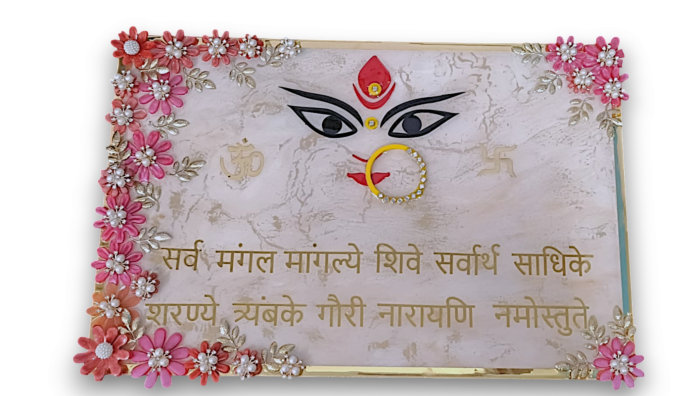 ॐ
सर्व मंगल मांगल्ये शिवे सर्वार्थ साधिके
शरण्ये त्र्यंबके गौरी नारायणि नमोस्तुते